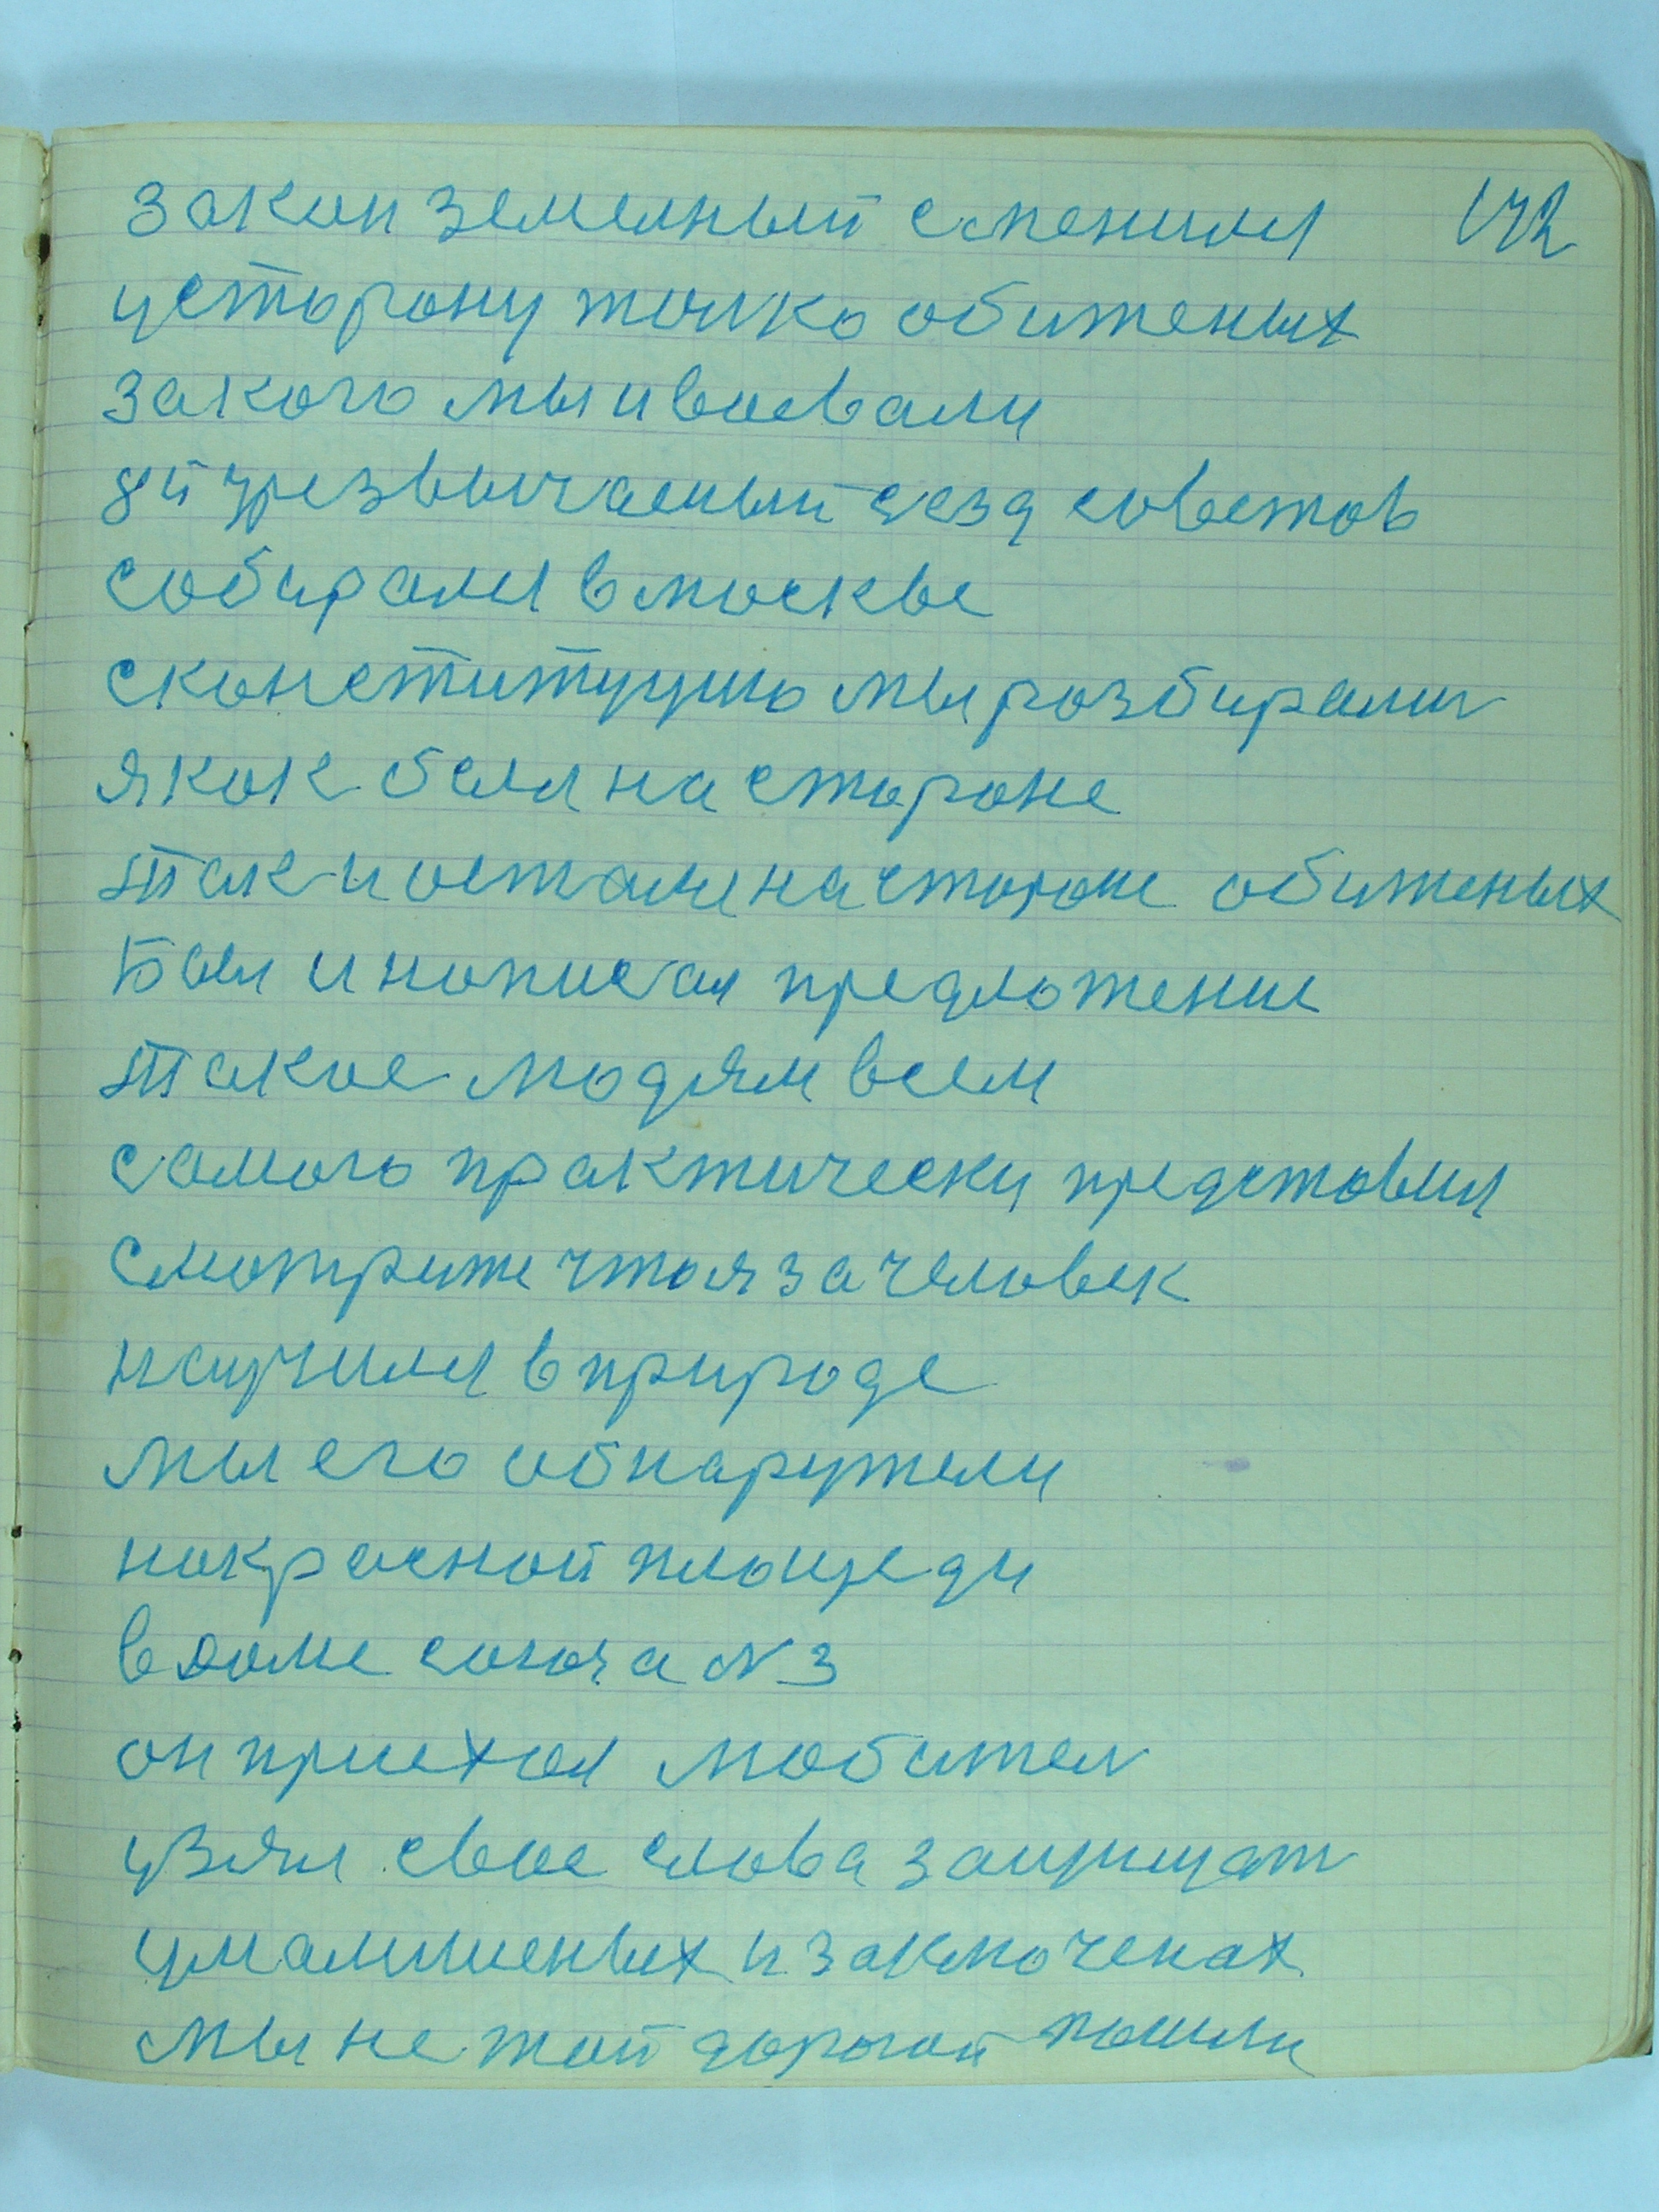 закон земелный сменил 172
усторону толко обиженых
закого мы и воевали
8й чрезвычаеный сезд советов
собирали в москве
сконституцию мы розбирали
я как был на стороне
так и остался на стороне обиженых
Был и нописал предложение
такое людям всем
самого практически представил
смотрите что я за человек
научился в природе
мы его обнаружели
накрасной площеди
в доме союза N 3
он приехал любител
узял свое слова защищат
умалишеных и заключенах
мы не той дорогой пошли